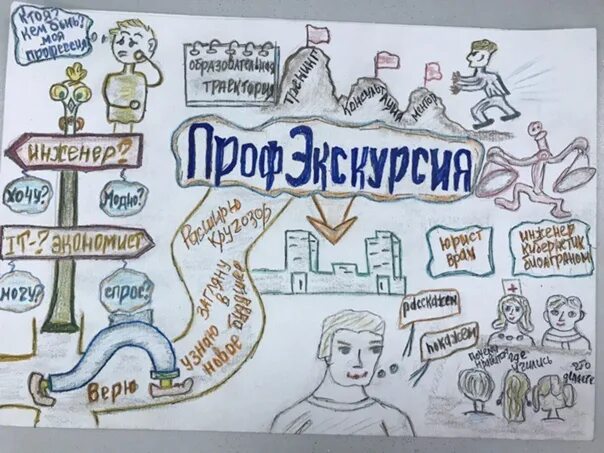 Кто я?
Кем быть?
моя
профессия
Образовательная
траектория
Тренинг
Консультация
ПрофЭкскурсия
инженер?
Хочу?
Модно?
IT-? экономист
могу?
спрос?
Верю
Расширю
Кругозор
загляну
в
узнаю
новое
юрист
врач
инженер
расскажем
покажем
Почему
где
учились
что
дальше